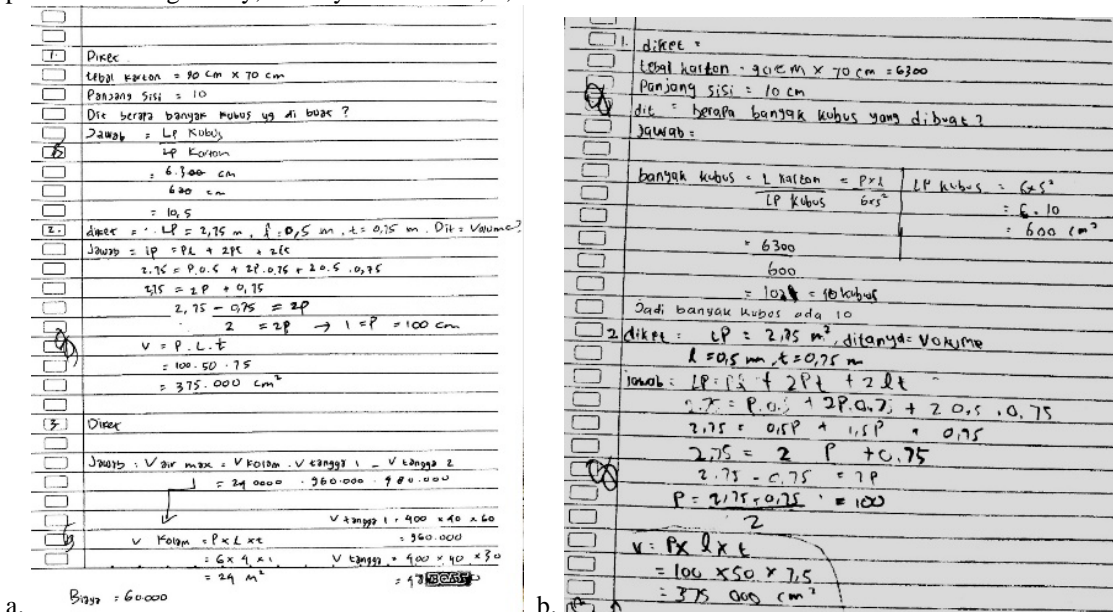 1. Diket
tebal karton = 90 cm x 70 cm
Panjang sisi = 10
Dit berapa banyak kubus yg di buat ?
Jawab = Lp Kubus
Lp Karton
= 6.300 cm
600 cm
= 10,5
2. diket = LP = 2,75 m, l = 0,5 m, t = 0,75 m. Dit = Volume?
Jawab = lp = Pl + 2Pt + 2lt
2.75 = P.0.5 + 2P.0.75 + 2 0.5 .0,75
2,75 = 2P + 0,75
2,75 - 0,75 = 2P
2 = 2P → 1 = P = 100 cm
V = P.L.t
= 100.50.75
= 375.000 cm²
3. Diket
Jawab : V air max = V kolam - V tangga 1 - V tangga 2
= 24 0000 - 960.000 - 480.000
V tangga 1 = 400 x 40 x 60
V Kolam = P x l x t
= 960.000
= 6 x 4 x 1
V tangga = 400 x 40 x 30
= 24 m²
Biaya = 60.000
a.
1. diket =
tebal karton = 90 cm x 70 cm = 6300
Panjang sisi = 10 cm
dit = berapa banyak kubus yang dibuat ?
Jawab =
banyak kubus = L karton = P x l
LP kubus 6 x s²
LP kubus = 6 x s²
= 6.10
= 600 cm²
= 6300
600
= kubus
Jadi banyak kubus ada 10
2 diket = LP = 2,75 m², ditanya = Volume
l = 0,5 m, t = 0,75 m
jawab = LP = Pl + 2Pt + 2lt
2.75 = P.0.5 + 2P.0.75 + 2 0,5 .0.75
2,75 = 0,5P + 1,5P + 0,75
2,75 = 2 P + 0.75
2.75 - 0.75 = 2P
P = 2,75 - 0,75 = 100
2
V = P x l x t
= 100 x 50 x 7,5
= 375 000 cm³
b.